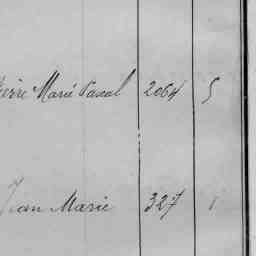 Pierre Marie Pascal 2064 5
Jean Marie 327 1